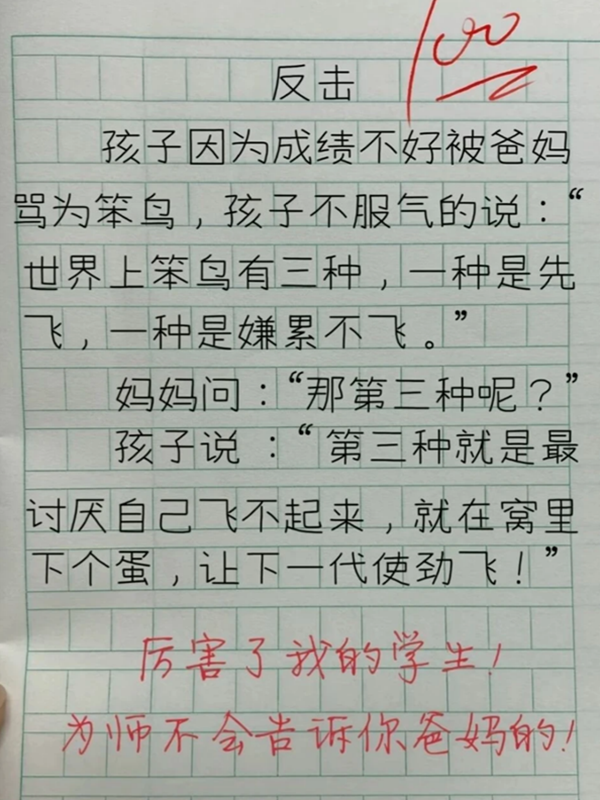 100
反击
孩子因为成绩不好被爸妈
骂为笨鸟，孩子不服气的说：“
世界上笨鸟有三种，一种是先
飞，一种是嫌累不飞。”
妈妈问：“那第三种呢？”
孩子说：“第三种就是最
讨厌自己飞不起来，就在窝里
下个蛋，让下一代使劲飞！”
厉害了我的学生！
为师不会告诉你爸妈的！